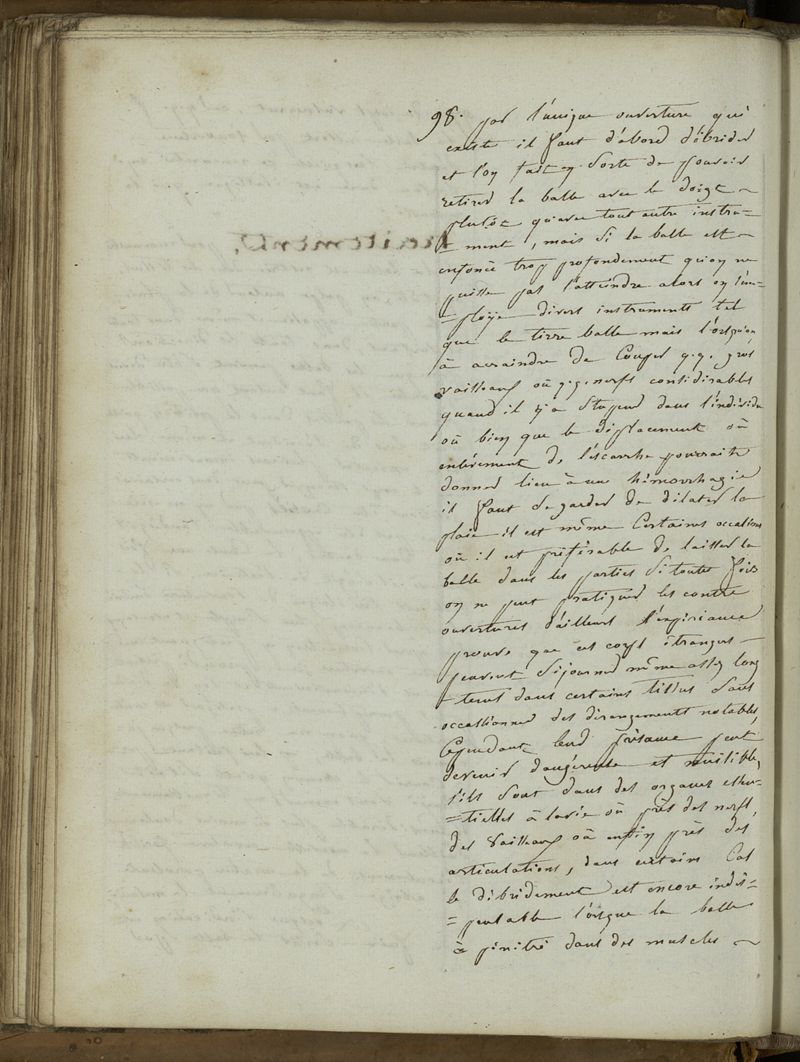 98. par l'unique ouverture qui
existe il faut d'abord débrider
et l'on fait en sorte de pouvoir
retirer la balle avec le doigt ~
plutôt qu'avec tout autre instru=
= ment, mais si la balle est ~
enfoncé trop profondement qu'on ne
puisse pas l'atteindre alors on l'em=
= ploye divers instruments tel
que le tirre balle mais l'orsqu'on
à acraindre de Couper q.q. gros
vaisseaux où q.q. nerfs considérables
quand il y a Stupeur dans l'individu
où bien que le déplacement où
enlèvement de l'éscarrhe pourraite
donner lieu à une hémorrhagie
il faut se garder de dilater la
plaie il est même Certaines occasions
où il est préférable de laisser la
balle dans les parties si toutes fois
on ne peut pratiquer les contre
ouvertures d'ailleurs l'expérience
prouve que ces corps étrangers ~
peuvent séjourner même assez long
= tems dans certains tissus sans
occassionner des dérangements notables,
Cependant leur présance peut
devenir dangéreuse et nuisible,
s'ils sont dans des organes essen=
= tielles à lavie où près des nerfs,
des vaisseaux où enfin près des
articulations, dans certains Cas
le débridement est encore indis=
= pensable l'orsque la balle
à pénétré dans des muscles ~
Traitement.